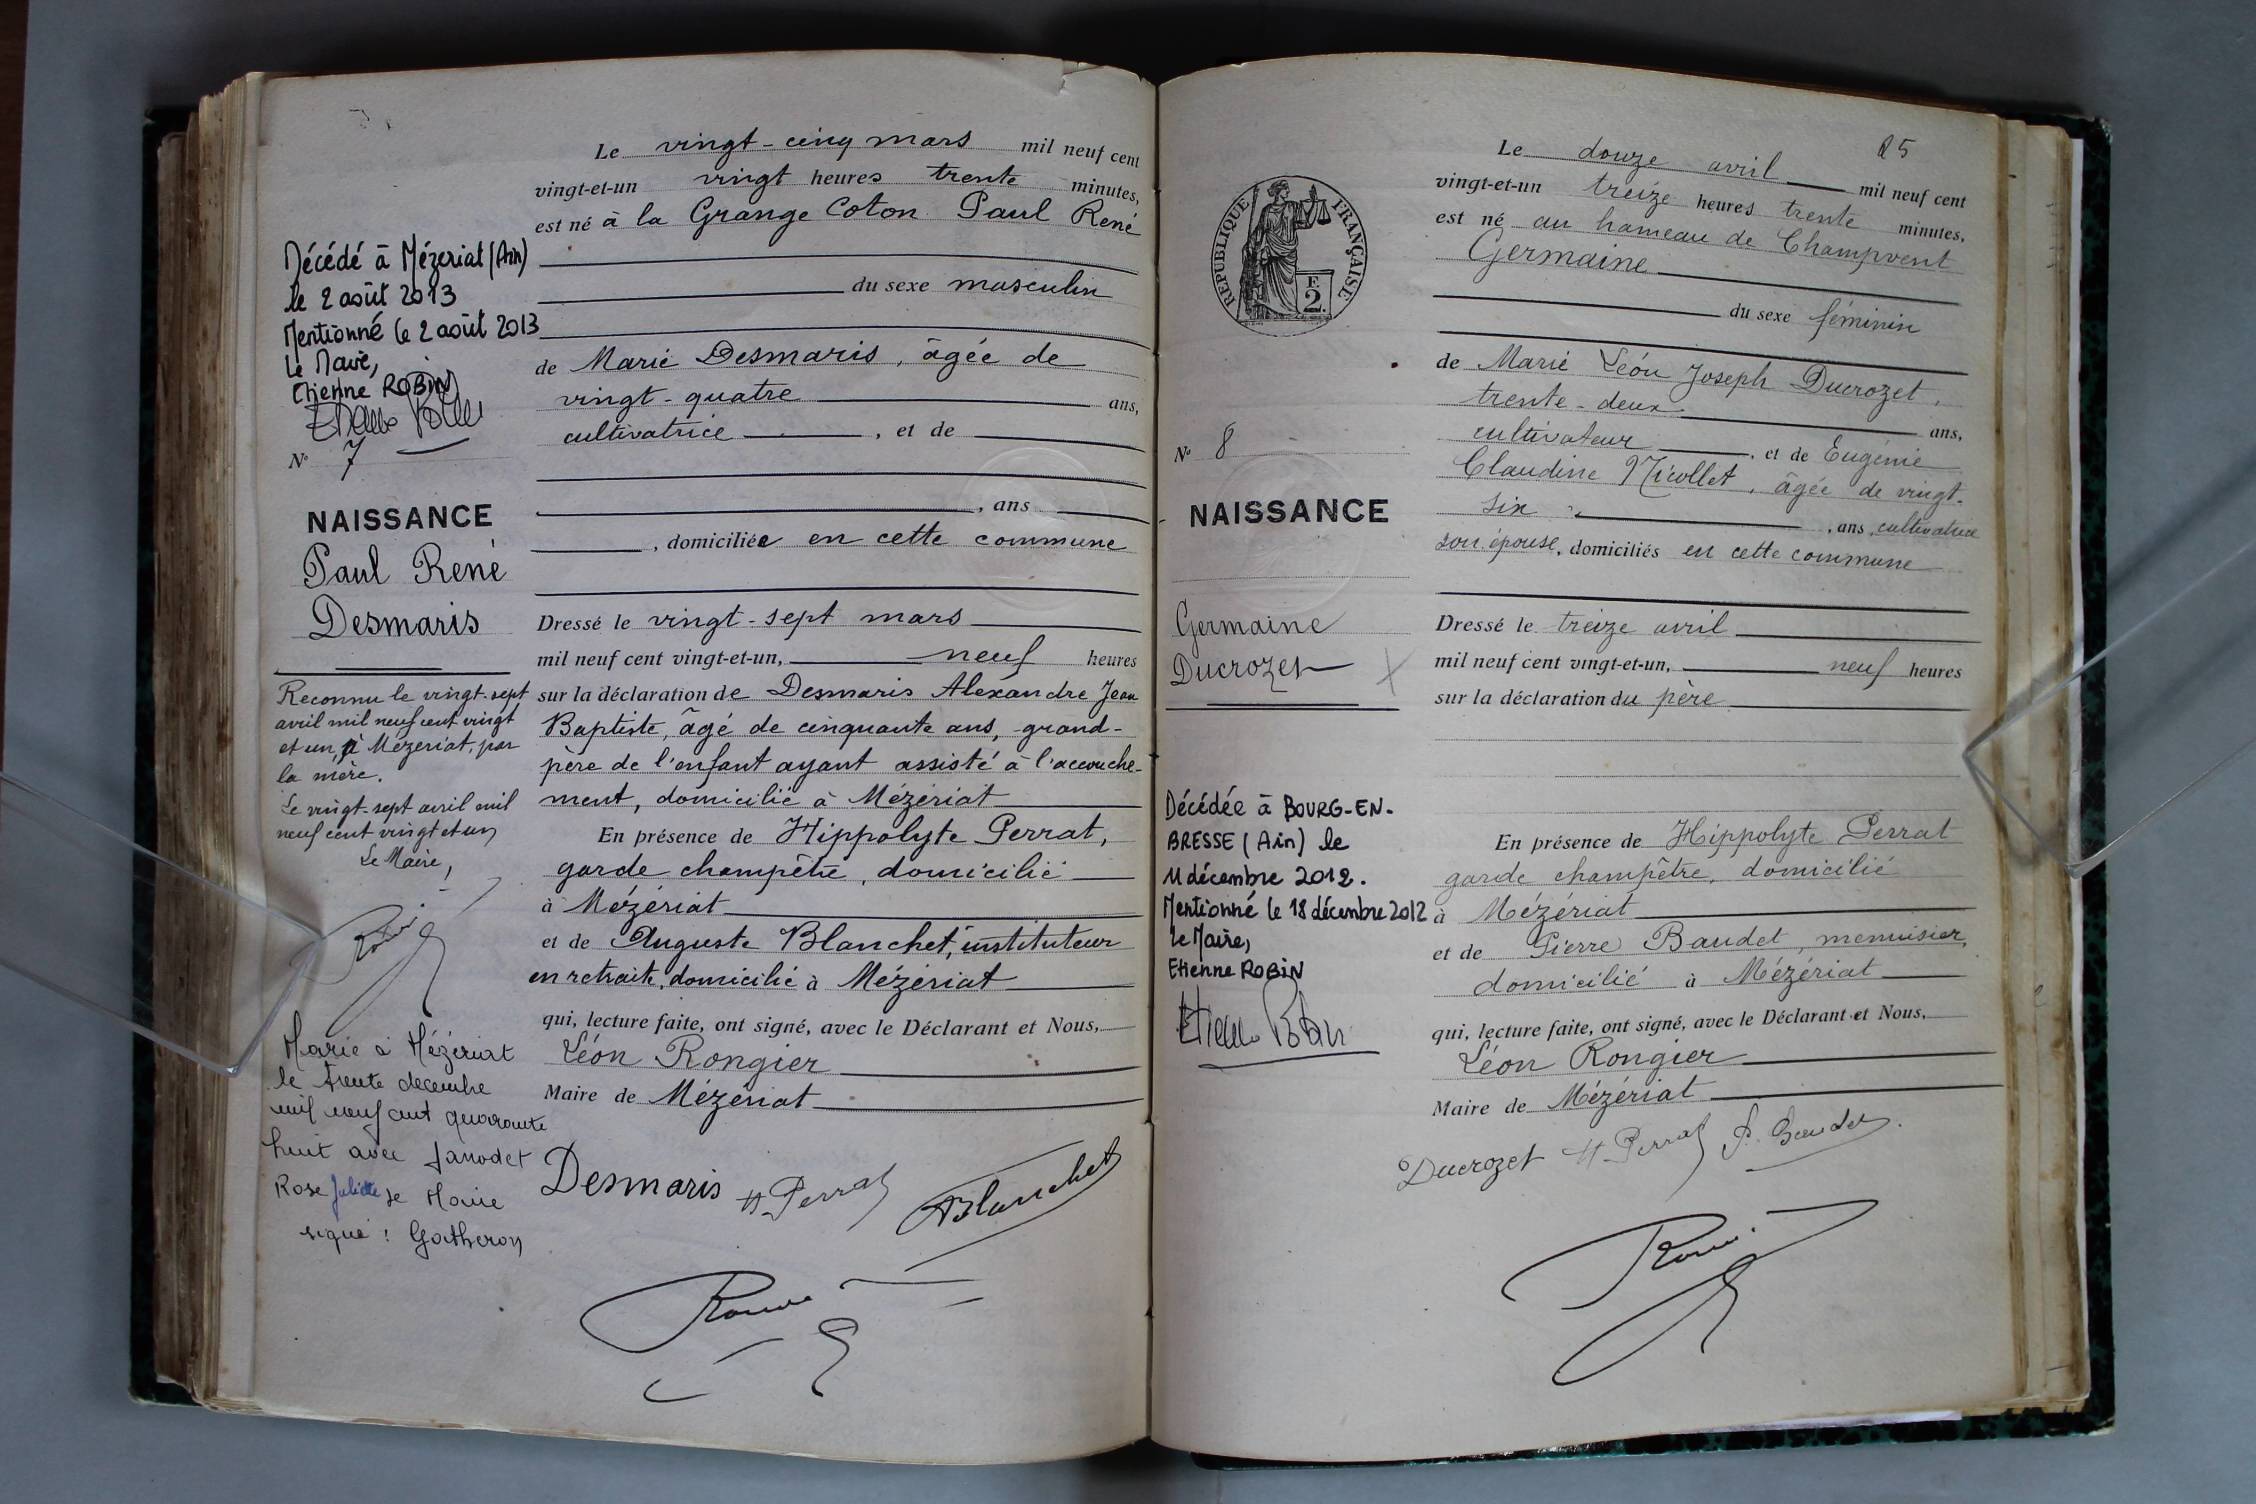 Le vingt-cinq mars mil neuf cent
vingt-et-un vingt heures trente minutes,
est né à la Grange Coton Paul René
du sexe masculin
de Marie Desmaris, âgée de
vingt-quatre ans,
cultivatrice, et de
, ans
, domiciliée en cette commune
Dressé le vingt-sept mars
mil neuf cent vingt-et-un, neuf heures
sur la déclaration de Desmaris Alexandre Jean
Baptiste, âgé de cinquante ans, grand-
père de l'enfant ayant assisté à l'accouche-
ment, domicilié à Mézériat
En présence de Hippolyte Perrat,
garde champêtre, domicilié
à Mézériat
et de Auguste Blanchet, instituteur
en retraite, domicilié à Mézériat
qui, lecture faite, ont signé, avec le Déclarant et Nous,
Léon Rongier
Maire de Mézériat
Desmaris H. Perrat ABlanchet
Décédé à Mézeriat (Ain)
le 2 août 2013
Mentionné le 2 août 2013
Le Maire,
Etienne ROBIN
N° 7
NAISSANCE
Paul René
Desmaris
Reconnu le vingt-sept
avril mil neuf cent vingt
et un, à Mézeriat, par
la mère.
Le vingt-sept avril mil
neuf cent vingt et un
Le Maire,
Marié à Mézériat
le trente décembre
mil neuf cent quarante
huit avec Janodet
Rose Juliette Le Maire
signé : Gatheron
25
Le douze avril mil neuf cent
vingt-et-un treize heures trente minutes,
est né au hameau de Champvent
Germaine
du sexe féminin
de Marie Léon Joseph Ducrozet,
trente-deux ans,
cultivateur, et de Eugénie
Claudine Nicollet, âgée de vingt-
six, ans, cultivatrice
son épouse, domiciliés en cette commune
Dressé le treize avril
mil neuf cent vingt-et-un, neuf heures
sur la déclaration du père
En présence de Hippolyte Perrat
garde champêtre, domicilié
à Mézériat
et de Pierre Baudet, menuisier,
domicilié à Mézériat
qui, lecture faite, ont signé, avec le Déclarant et Nous,
Léon Rongier
Maire de Mézériat
Ducrozet H. Perrat P. Baudet
REPUBLIQUE FRANÇAISE
F.
2.
N° 8
NAISSANCE
Germaine
Ducrozet
Décédée à BOURG-EN-
BRESSE (Ain) le
11 décembre 2012.
Mentionné le 18 décembre 2012
Le Maire,
Etienne ROBIN